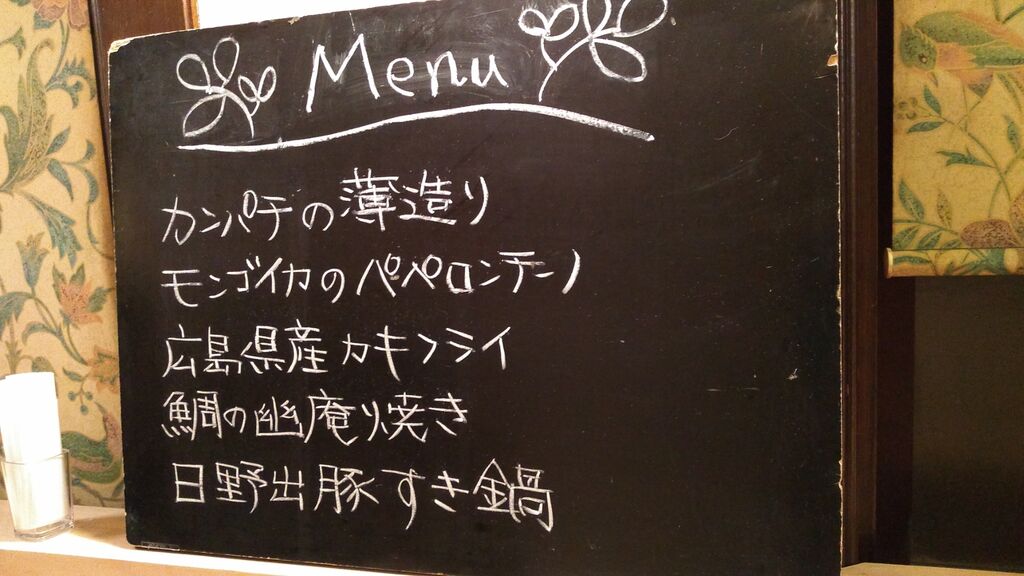 Menu
カンパチの薄造り
モンゴイカのペペロンチーノ
広島県産カキフライ
鯛の幽庵り焼き
日野出豚すき鍋